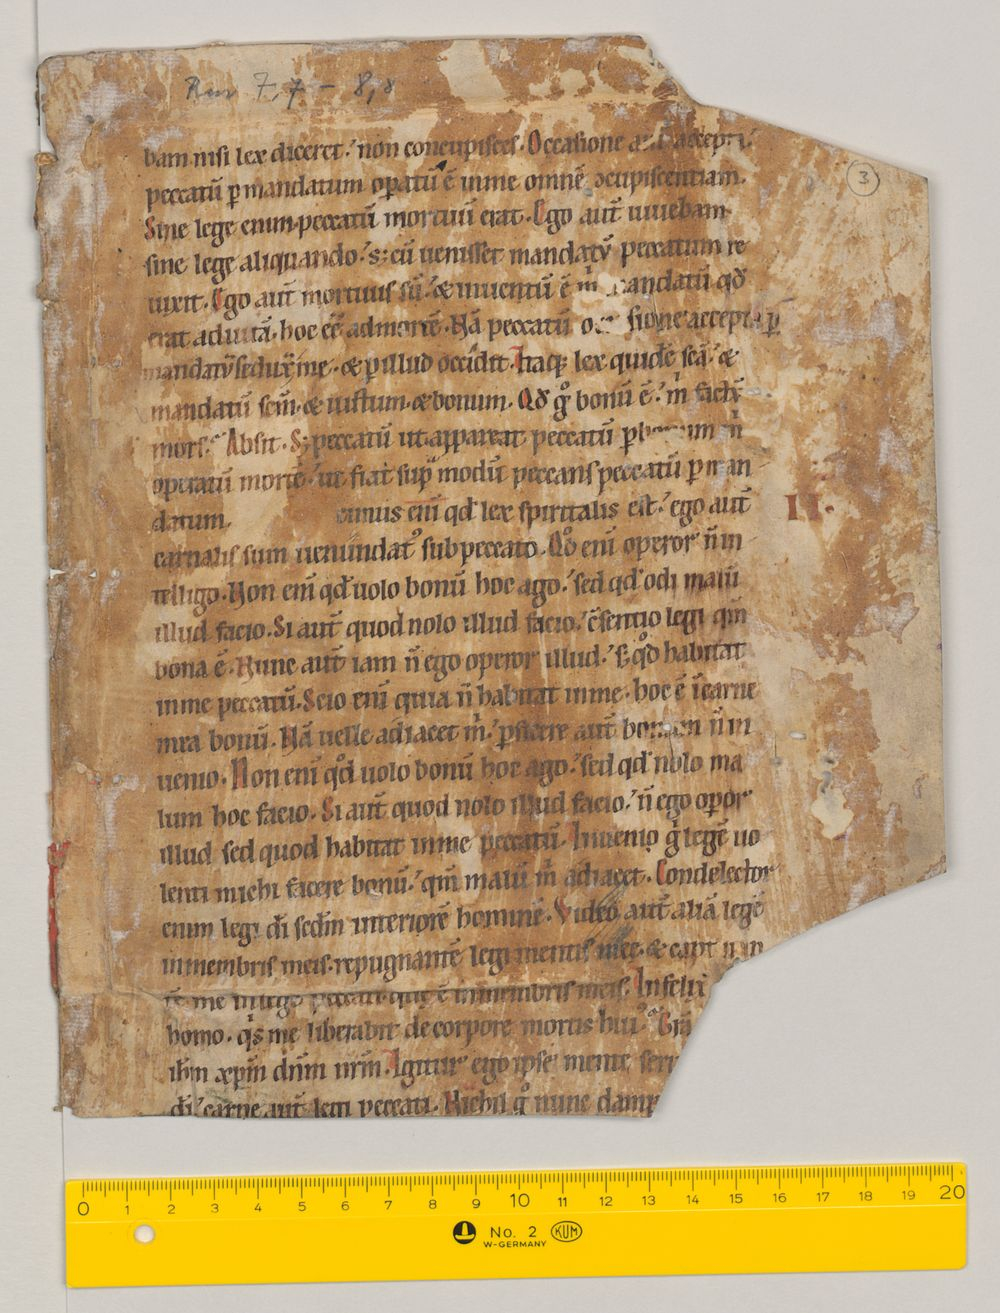 Röm 7,7 - 8,8
3
bam nisi lex diceret. non concupisces. Occasione aū accepta
peccatū ꝑ mandatum opatū ē in me omnē ꝯcupiscentiam.
Sine lege enim peccatū mortuū erat. Ego aūt uiuebam
sine lege aliquando. s; cū uenisset mandatū peccatum re
uixit. Ego aūt mortuus sū. & inuentū ē m̍ mandatū qd̄
erat ad uitā. hoc eē ad mortē. Nā peccatū occasione accepta ꝑ
mandatū seduxit me. & ꝑ illud occidit. Itaq; lex quidē scā. &
mandatū scm̄. & iustum. & bonum. Qd̄ gͦ bonū ē. m̍ factū
mors. Absit. S; peccatū ut appareat peccatū ꝑ bonum m̍
operatū mortē. ut fiat sup̄ modū peccans peccatū ꝑ man
datum. cimus enī qd̄ lex spiritalis est. ego aūt
II.
carnalis sum uenundatꝰ sub peccato. Qd̄ enī operor n̄ in
telligo. Non enī qd̄ uolo bonū hoc ago. sed qd̄ odi malū
illud facio. Si aūt quod nolo illud facio. c̄sentio legi qm̄
bona ē. Nunc aūt iam n̄ ego operor illud. s; qd̄ habitat
in me peccatū. Scio enī quia n̄ habitat in me. hoc ē ī carne
mea bonū. Nā uelle adiacet m̍. ꝑficere aūt bonum n̄ in
uenio. Non enī qd̄ uolo bonū hoc ago. sed qd̄ nolo ma
lum hoc facio. Si aūt quod nolo illud facio. n̄ ego opor
illud sed quod habitat in me peccatū. Inuenio gͦ legē uo
lenti michi facere bonū. qm̄ malū m̍ adiacet. Condelector
enim legi dī scdm̄ interiorē hominē. Video aūt aliā legē
in membris meis. repugnantē legi mentis mee. & capt
tē me in lege peccati. que ē in membris meis. Infelix
homo. qͥs me liberabit de corpore mortis huiꝰ. Grā
ihm̄ xpm̄ dnm̄ nrm̄. Igitur ego ipse mente seru
dī. carne aūt legi peccati. Nichil gͦ nunc damp
0 1 2 3 4 5 6 7 8 9 10 11 12 13 14 15 16 17 18 19 20
No. 2 KUM
W-GERMANY